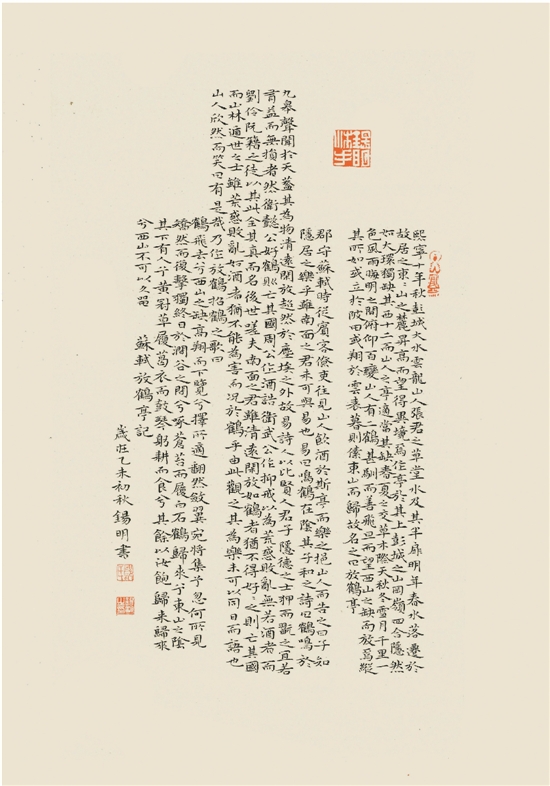 熙寧十年秋彭城大水雲龍山人張君之草堂水及其半扉明年春水落遷於
故居之東二山之麓昇高而望得異境焉作亭於其上彭城之山岡嶺四合隱然
如大環獨缺其西十二而山人之亭適當其缺春夏之交草木際天秋冬雪月千里一
色風雨晦明之間俯仰百變山人有二鶴甚馴而善飛旦而望西山之缺而放焉縱
其所如或立於陂田或翔於雲表暮則傃東山而歸故名之曰放鶴亭
郡守蘇軾時從賓客僚吏往見山人飲酒於斯亭而樂之挹山人而告之曰子知
隱居之樂乎雖南面之君未可與易也易曰鳴鶴在陰其子和之詩曰鶴鳴於
九皋聲聞於天蓋其為物清遠閑放超然於塵埃之外故易詩人以比賢人君子隱德之士狎而翫之宜若
有益而無損者然衛懿公好鶴則亡其國周公作酒誥衛武公作抑戒以為荒惑敗亂無若酒者而
劉伶阮籍之徒以其此全其真而名後世嗟夫南面之君雖清遠閑放如鶴者猶不得好々之則亡其國
而山林遁世之士雖荒惑敗亂好酒者猶不能為害而況於鶴乎由此觀之其為樂未可以同日而語也
山人欣然而笑曰有是哉乃作放鶴招鶴之歌曰
鶴飛去兮西山之缺高翔而下覽兮擇所適翻然斂翼宛將集兮忽何所見
矯然而復擊獨終日於澗谷之間兮啄蒼苔而履白石鶴歸來兮東山之陰
其下有人兮黃冠草履葛衣而鼓琴躬耕而食兮其餘以汝飽歸來歸來
兮西山不可以久留 蘇軾放鶴亭記
歲在乙未初秋錫明書